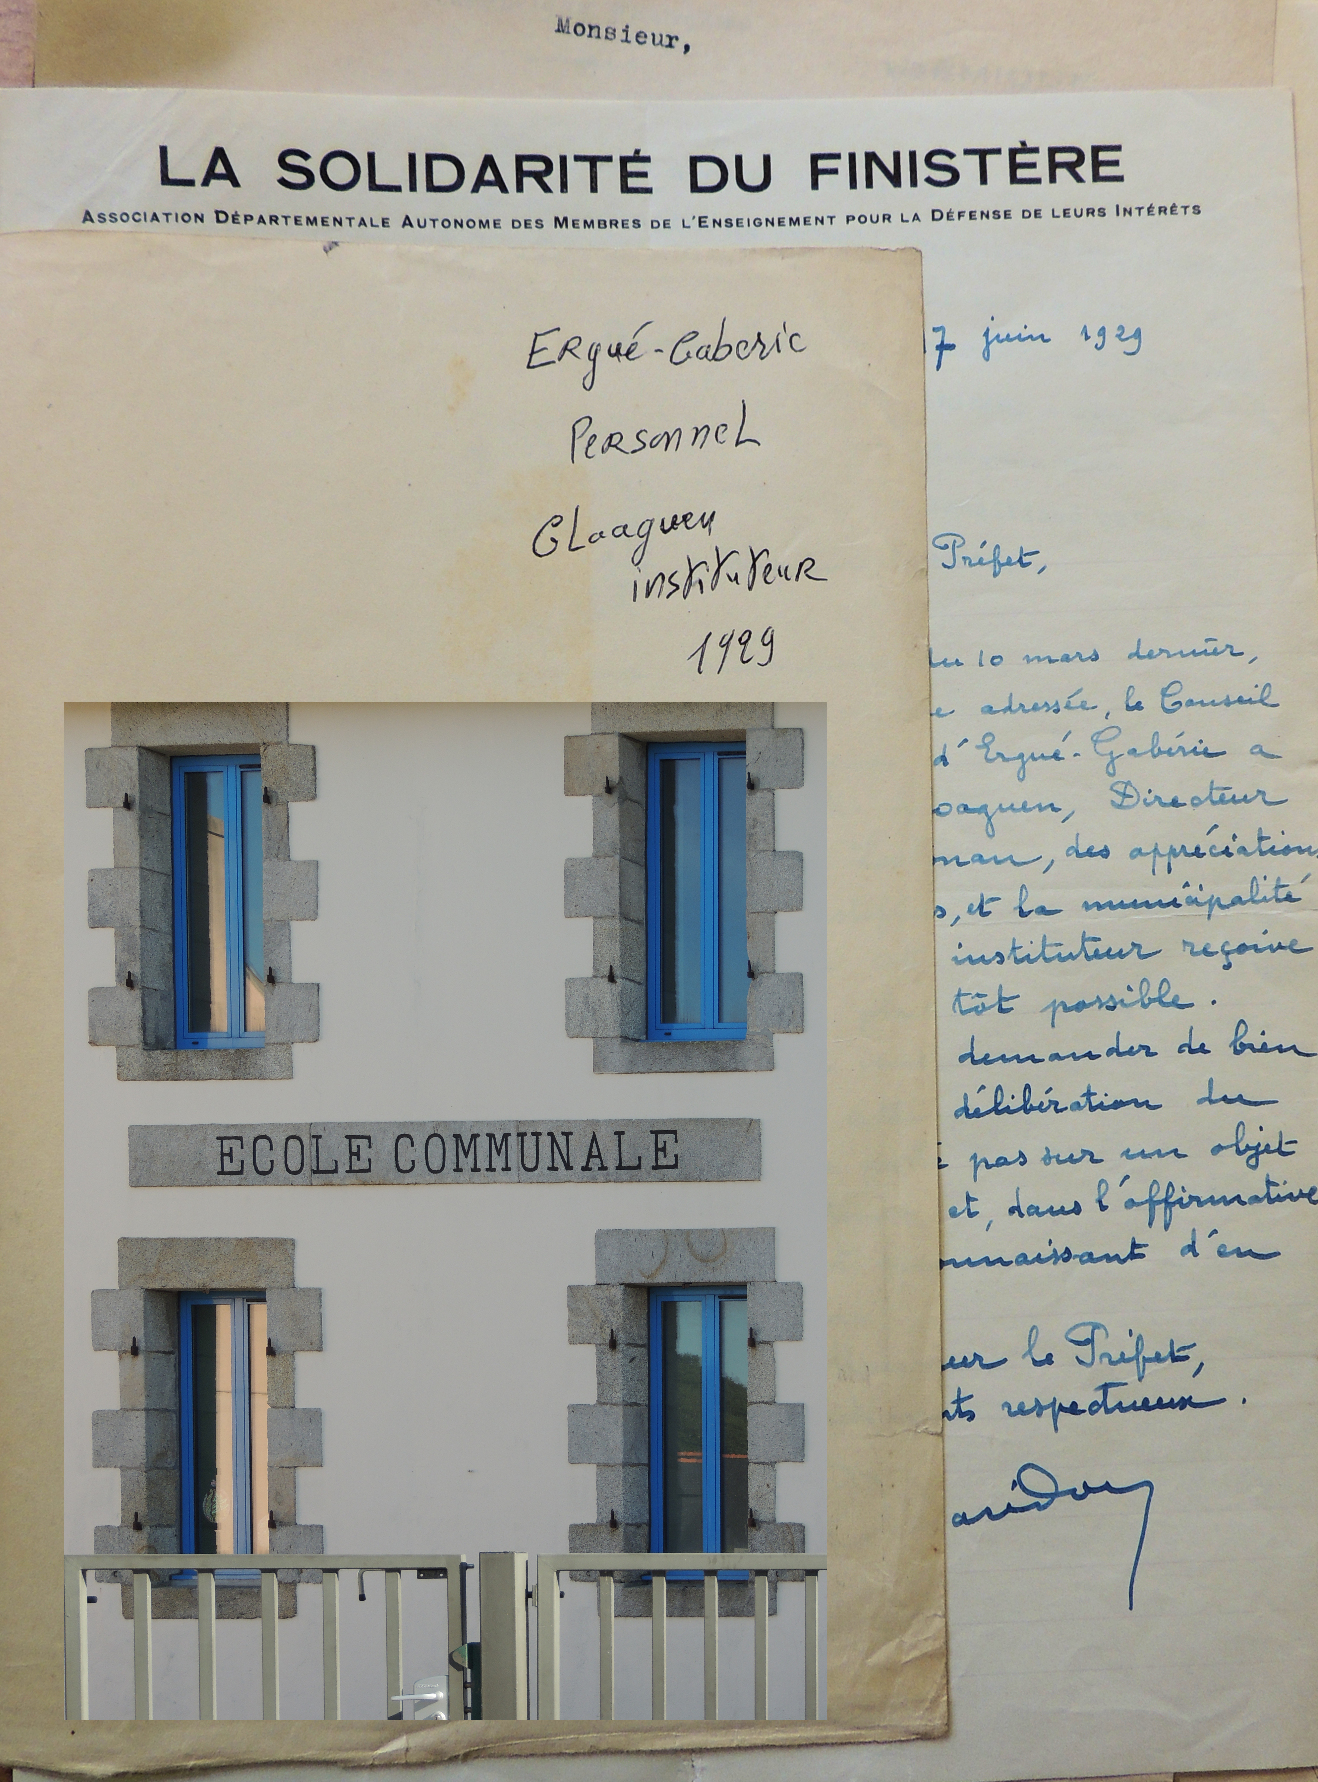 Monsieur,
LA SOLIDARITÉ DU FINISTÈRE
ASSOCIATION DÉPARTEMENTALE AUTONOME DES MEMBRES DE L'ENSEIGNEMENT POUR LA DÉFENSE DE LEURS INTÉRÊTS
Ergué-Gabéric
Personnel
Gloaguen
instituteur
1929
7 juin 1929
Préfet,
du 10 mars dernier,
e adressée, le Conseil
d'Ergué-Gabéric a
oaguen, Directeur
nan, des appréciations
s, et la municipalité
instituteur reçoive
tôt possible.
demander de bien
délibération du
pas sur un objet
et, dans l'affirmative
onnaissant d'en
eur le Préfet,
nts respectueux.
ECOLE COMMUNALE